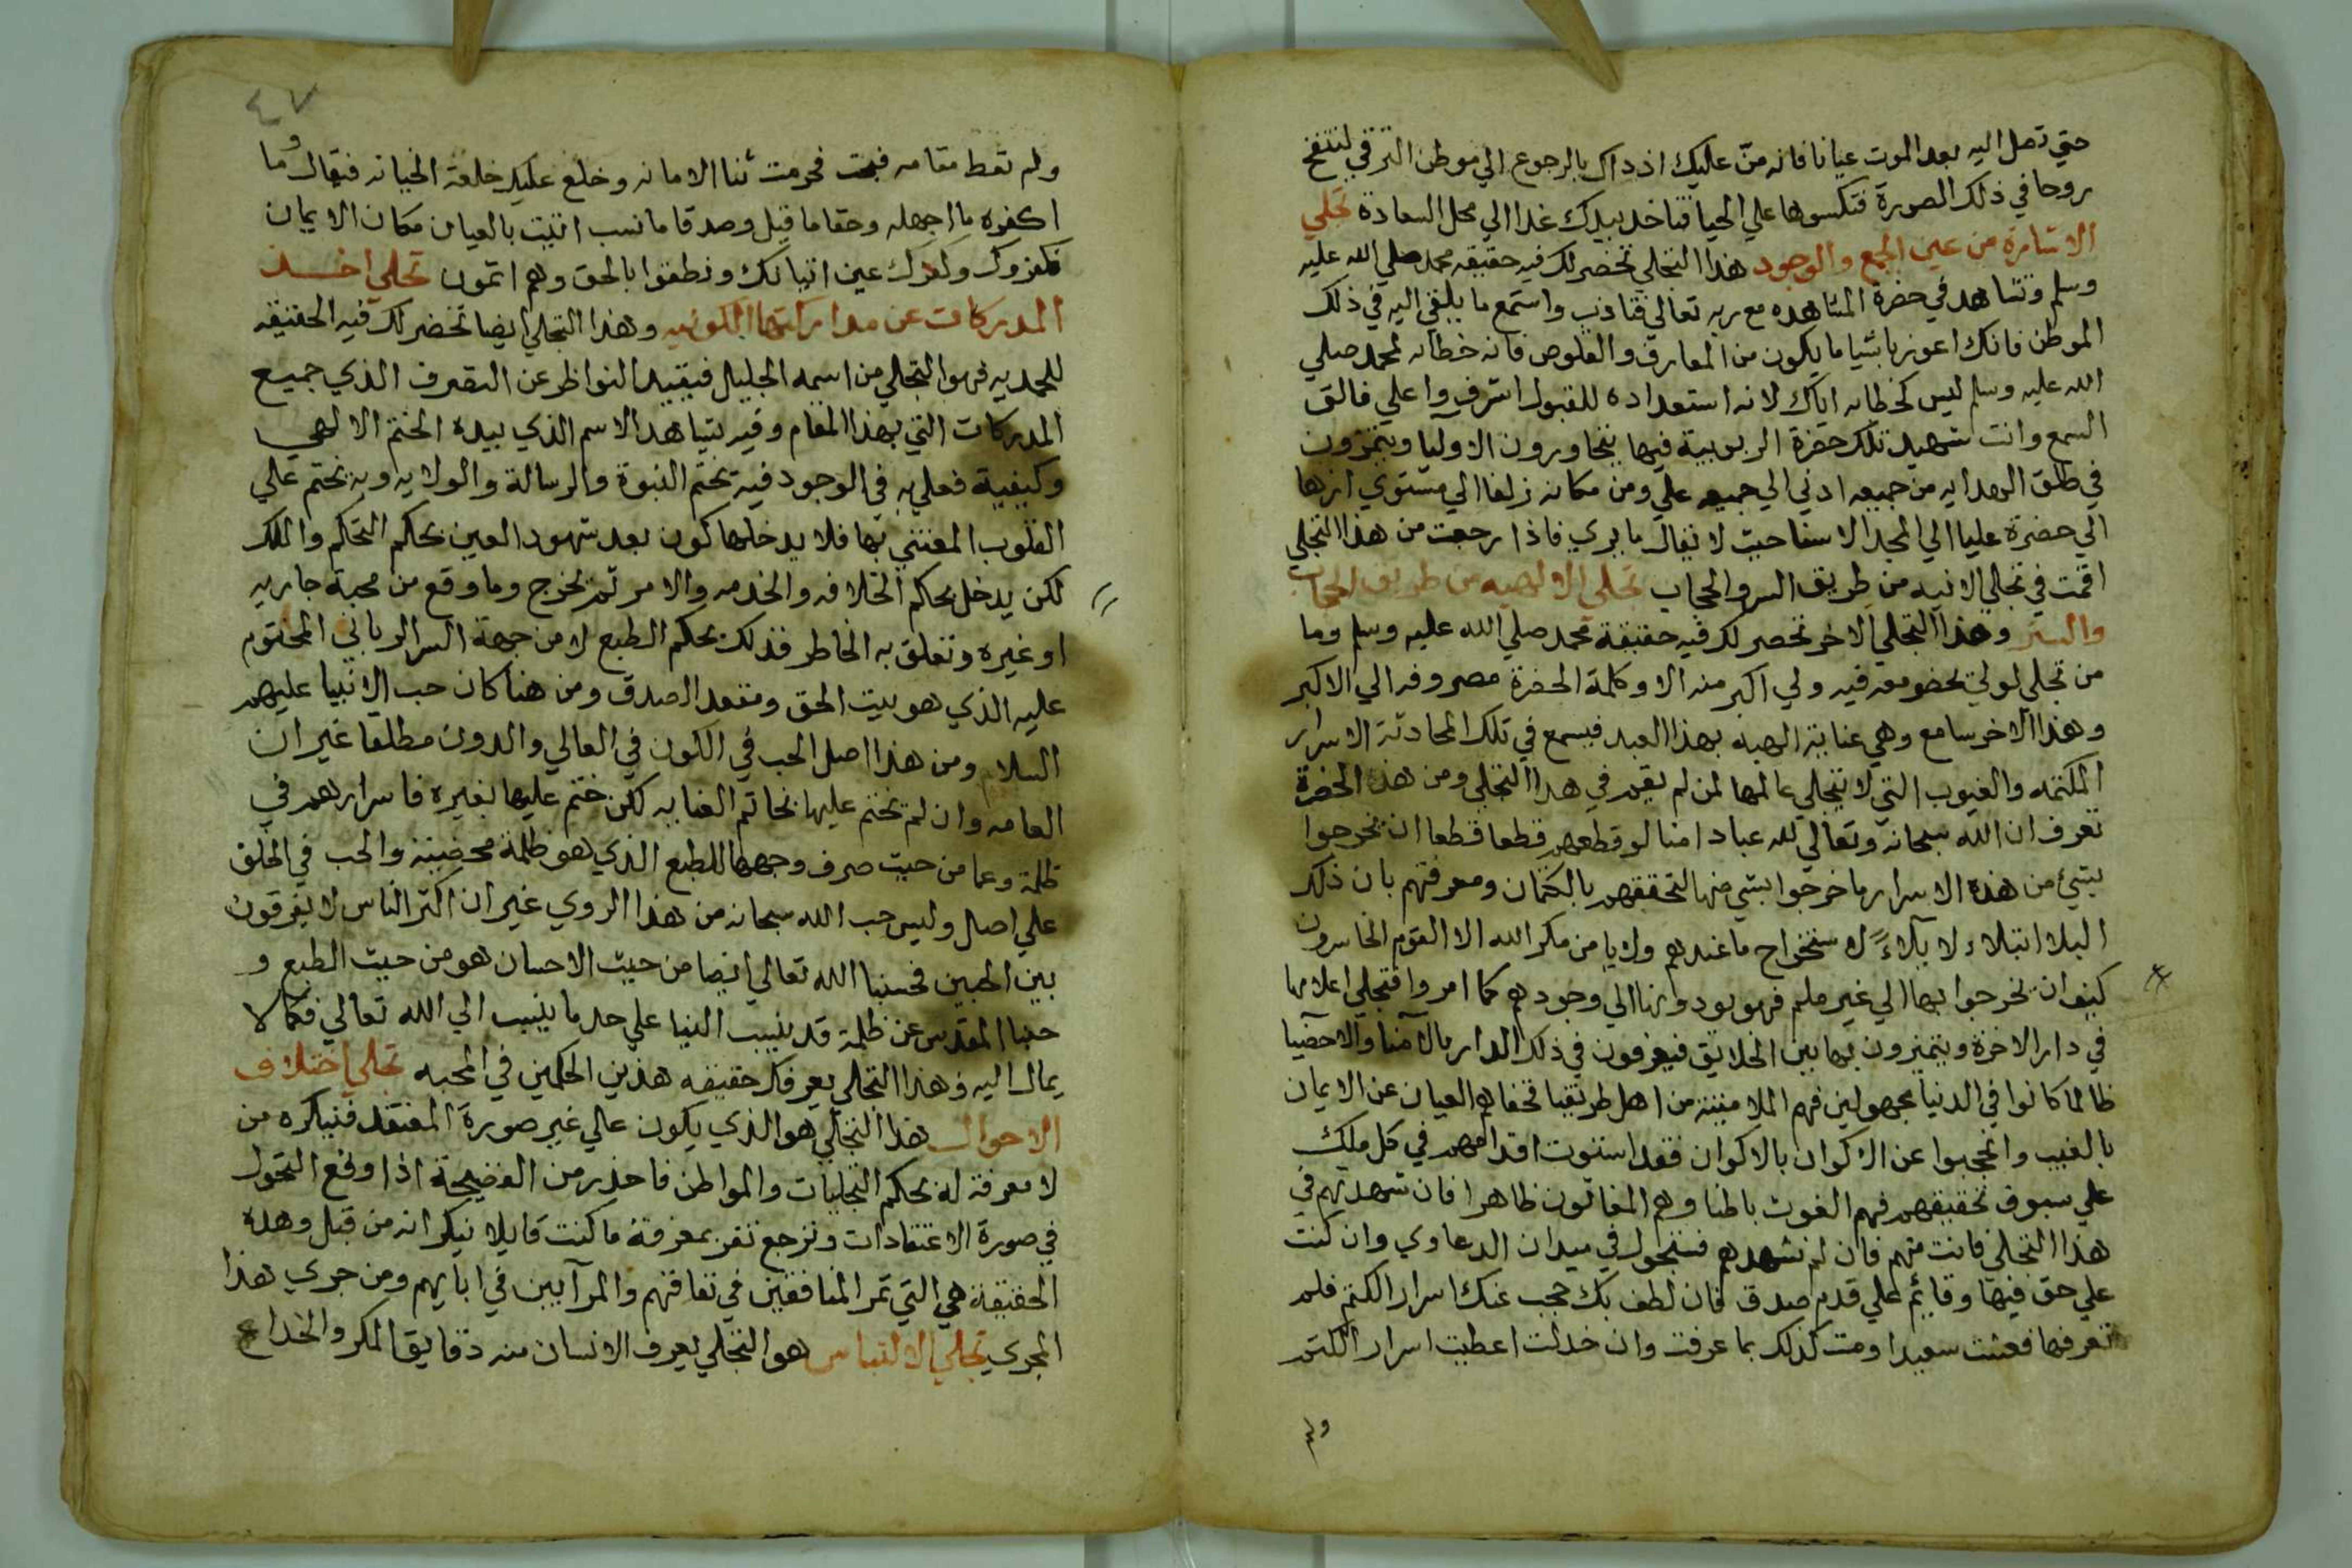 حتي تصل اليه بعد الموت عيانا فانه منّ عليك اذ ذاك بالرجوع الي موطن الترقي لتنفخ
روحا في ذلك الصورة فتكسوها علي الحيا فتاخذ بيدك غدا الي محل السعادة تجلي
الاشارة من عين الجمع والوجود هذا التجلي تحضر لك فيه حقيقه محمد صلي الله عليه
وسلم وتشاهد في حضرة المشاهده مع ربه تعالي فتاذب واستمع ما يلقي اليه في ذلك
الموطن فانك اعوز باشيا ما يكون من المعارف والفلوص فانه خطابه لمحمد صلي
الله عليه وسلم ليس كخطابه اياك لانه استعداده للقبول اشرف واعلي فالق
السمع وانت شهيد تلك حضرة الربوبية فيها يتجاورون الاوليا ويتميزون
في طلق الهدايه من جميعه ادني الي جميعه علي ومن مكانه زلفا الي مستوي ازها
الي حضرة عليا الي المجد الاسنا حيث لا يقال ما يري فاذا رجعت من هذا التجلي
اقمت في تجلي الانيه من طريق السر والحجاب تجلي الالهيه من طريق الحجاب
والستر وهذا التجلي الاخر تحضر لك فيه حقيقة محمد صلي الله عليه وسلم وما
من تجلي لولي يحضر معه فيه ولي اكبر منه الا وكلمة الحضرة مصروفه الي الاكبر
وهذا الاخر سامع وهي عناية الهيه بهذا العبد فيسمع في تلك المحادثة الاسرار
المكتمه والغيوب التي لا تتجلي عالمها لمن لم يقم في هذا التجلي ومن هذه الحضرة
تعرف ان الله سبحانه وتعالي لله عبادا امنا لو قطعهم قطعا قطعا ان يخرجوا
بشيء من هذه الاسرار ما خرجوا بشي منها لتحققهم بالكتمان ومعرفتهم بان ذلك
البلا ابتلاء لا بلاءً لاستخراج ما عندهم ولا يامن مكر الله الا القوم الخاسرون
كيف ان يخرجوا بها الي غير ملهم فهو يودوانها الي وجودهم كما امروا فتجلي اعلامها
في دار الاخرة ويتميزون بها بين الخلائق فيعرفون في ذلك الدار بالامنا والاحضيا
طالما كانوا في الدنيا مجهولين فهم الملامتية من اهل طريقنا فحفاهم العيان عن الايمان
بالغيب وانحجبوا عن الاكوان بالاكوان فقد استوت اقدامهم في كل ملك
علي سبوق تحقيقهم فهم الغوث باطنا وهم المغاثون ظاهرا فان شهدتهم في
هذا التجلي فانت منهم فان لم تشهدهم فستجول في ميدان الدعاوي وان كنت
علي حق فيها وقايم علي قدم صدق فان لطف بك حجب عنك اسرار الكتم فلم
تعرفها فعشت سعيدا ومت كذلك بما عرفت وان خذلت اعطيت اسرار الكتم
ولم
٤٧
ولم تعط مقامه فبحت فحرمت ثنا الامانه وخلع عليك خلعة الخيانه فيقال وما
اكفره ما اجهله وحقا ما قيل وصدقا ما نسب اتيت بالعيان مكان الايمان
فكفروك وكفرك عين اتيانك ونطقوا بالحق وهم اثمون تجلي اخذ
المدركات عن مداركها الكونيه وهذا التجلي ايضا تحضر لك فيه الحقيقه
المحمديه فهو التجلي من اسمه الجليل فيقيد النواظر عن التصرف الذي جميع
المدركات التي بهذا المقام وفيه يشاهد الاسم الذي بيده الختم الالهي
وكيفية فعلي به في الوجود فيه تختم النبوة والرسالة والولايه وبه نختم علي
القلوب المفتني بها فلا يدخلها كون بعد شهود العين بحكم التحكم والملك
لكن يدخل بحكم الخلافه والخدمه والامر ثم يخرج وما وقع من محبة جاريه
او غيره وتعلق به الخاطر فذلك بحكم الطبع لا من جهة السر الرباني المختوم
عليه الذي هو بيت الحق ومقعد الصدق ومن هنا كان حب الانبيا عليهم
السلام ومن هذا اصل الحب في الكون في العالي والدون مطلقا غير ان
العامه وان لم تختم عليها بخاتم العنايه لكن ختم عليها بغيره فاسرارهم في
ظلمة وعما من حيث صرف وجهها للطبع الذي هو ظلمة محضية والحب في الخلق
علي اصل وليس حب الله سبحانه من هذا الروي غير ان اكثر الناس لا يفرقون
بين الحبين فحسبنا الله تعالي ايضا من حيث الاحسان هو من حيث الطبع و
حبنا المقدس عن ظلمة قد ينسب الينا علي حد ما ينسب الي الله تعالي فكما لا
يمال اليه وهذا التجلي يعرفك حقيقه هذين الحكمين في المحبه تجلي اختلاف
الاحوال هذا التجلي هو الذي يكون عالي غير صورة المعتقد فنباكره من
لا معرفة له بحكم التجليات والمواطن فاحذر من الفضيحة اذا وقع التحول
في صورة الاعتقادات وترجع تقر بمعرفة ما كنت قايلا بنكرانه من قبل وهذه
الحقيقة هي التي تمر المنافقين في نفاقهم والمرآيين في ايابهم ومن جري هذا
المجري تجلي الالتباس هو التجلي يعرف الانسان منه دقايق المكر والخداع